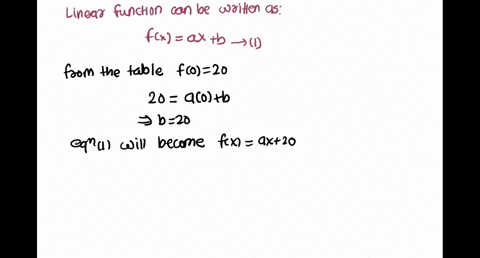 Linear function can be written as:
f(x) = ax + b → (1)
from the table f(0) = 20
20 = a(0) + b
⇒ b = 20
eqⁿ(1) will become f(x) = ax + 20